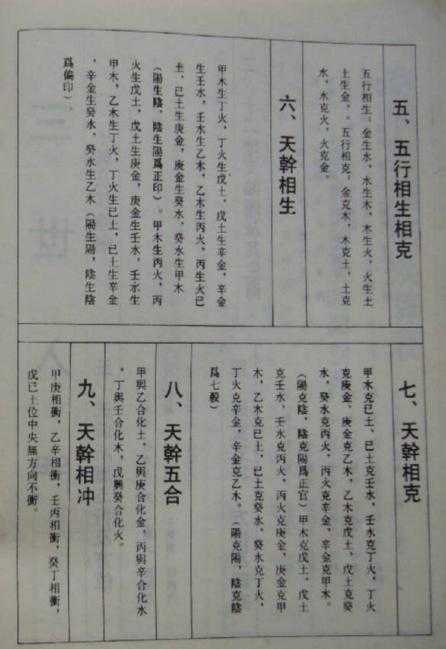 五、五行相生相克
五行相生。金生水，水生木，木生火，火生土
土生金。。五行相克。金克木，木克土，土克
水，水克火，火克金。
六、天幹相生
甲木生丁火，丁火生戊土，戊土生辛金，辛金
生壬水，壬水生乙木，乙木生丙火，丙生火已
土，已土生庚金，庚金生癸水，癸水生甲木
（陽生陰，陰生陽爲正印）。甲木生丙火，丙
火生戊土，戊土生庚金，庚金生壬水，壬水生
甲木，乙木生丁火，丁火生已土，已土生辛金
，辛金生癸水，癸水生乙木（陽生陽，陰生陰
爲偏印）。
七、天幹相克
甲木克已土，已土克壬水，壬水克丁火，丁火
克庚金，庚金克乙木，乙木克戊土，戊土克癸
水，癸水克丙火，丙火克辛金，辛金克甲木。
（陽克陰，陰克陽爲正官）甲木克戊土，戊土
克壬水，壬水克丙火，丙火克庚金，庚金克甲
木，乙木克已土，已土克癸水，癸水克丁火，
丁火克辛金，辛金克乙木。（陽克陽，陰克陰
爲七殺）
八、天幹五合
甲與乙合化土，乙與庚合化金，丙與辛合化水
，丁與壬合化木，戊與癸合化火。
九、天幹相冲
甲庚相衝，乙辛相衝，壬丙相衝，癸丁相衝，
戊已土位中央無方向不衝。